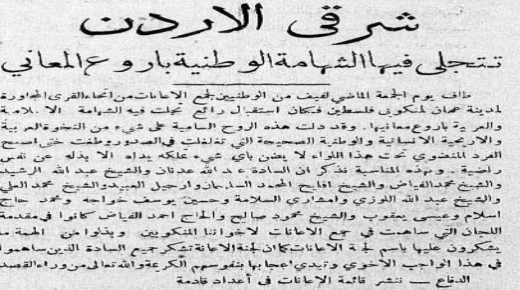 شرقي الاردن
تتجلى فيها الشهامة الوطنية باروع المعاني
طاف يوم الجمعة الماضي لفيف من الوطنيين لجمع الاعانات من انحاء القرى المجاورة
لمدينة عمان لمنكوبى فلسطين فكان استقبال رائع تجلت فيه الشهامة الاسلامية
والعربية باروع معانيها. وقد دلت هذه الروح السامية على شيء من النخوة العربية
والاريحية الانسانية والوطنية الصحيحة التي تغلغلت في الصدور وطغت حتى اصبح
الفرد المنضوي تحت هذا اللواء لا يضن بأي شيء تملكه يداه الا يبذله عن نفس
راضية. وبهذه المناسبة نذكر ان السادة عبد الله عدنان والشيخ عبد الله الرشيد
والشيخ محمد الفياض والشيخ افليح الحمد السلمان وارحيل العبيد والشيخ محمد العلي
والشيخ عبد الله اللوزي وامشاري السلامة وحسين يوسف خواجه ومحمد حاج
اسلام وعيسى يعقوب والشيخ محمود صالح والحاج احمد الفياض كانوا في مقدمة
اللجان التي ساهمت في جمع الاعانات لاخواننا المنكوبين وبذلوا من الهمة ما
يشكرون عليها باسم لجنة الاعانات كما ان لجنة الاعانة تشكر جميع السادة الذين ساهموا
في هذا الواجب الاخوي وتبدي اعجابها بنفوسهم الكريمة والله تعالى من وراء القصد
الدفاع — ننشر قائمة الاعانات في أعداد قادمة